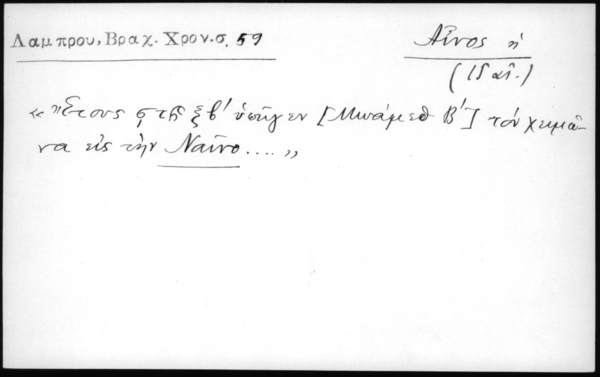 Λαμπρου, Βραχ. Χρον.σ. 59
Αἶνος ἡ
« Ἔτους ϛ ξβ' ὑπῆγεν [Μπάμεθ Β'] τὸν χειμῶ-
να εἰς τὴν Ναῖνο.... »